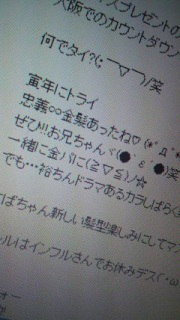 スプレゼントの
大阪でのカウントダウン
何でタイ?(; ￣▽￣)/笑
寅年にトライ
忠義∞金髪あったね♡(*´Д`*
ぜひ!!お兄ちゃんヾ(●´ε`●)笑
一緒に金パに(≧∇≦)/☆
でも…裕ちんドラマあるカラしばらく
ばちゃん新しい髪型楽しみにしてマ
ルはインフルさんでお休みデス(´・ω